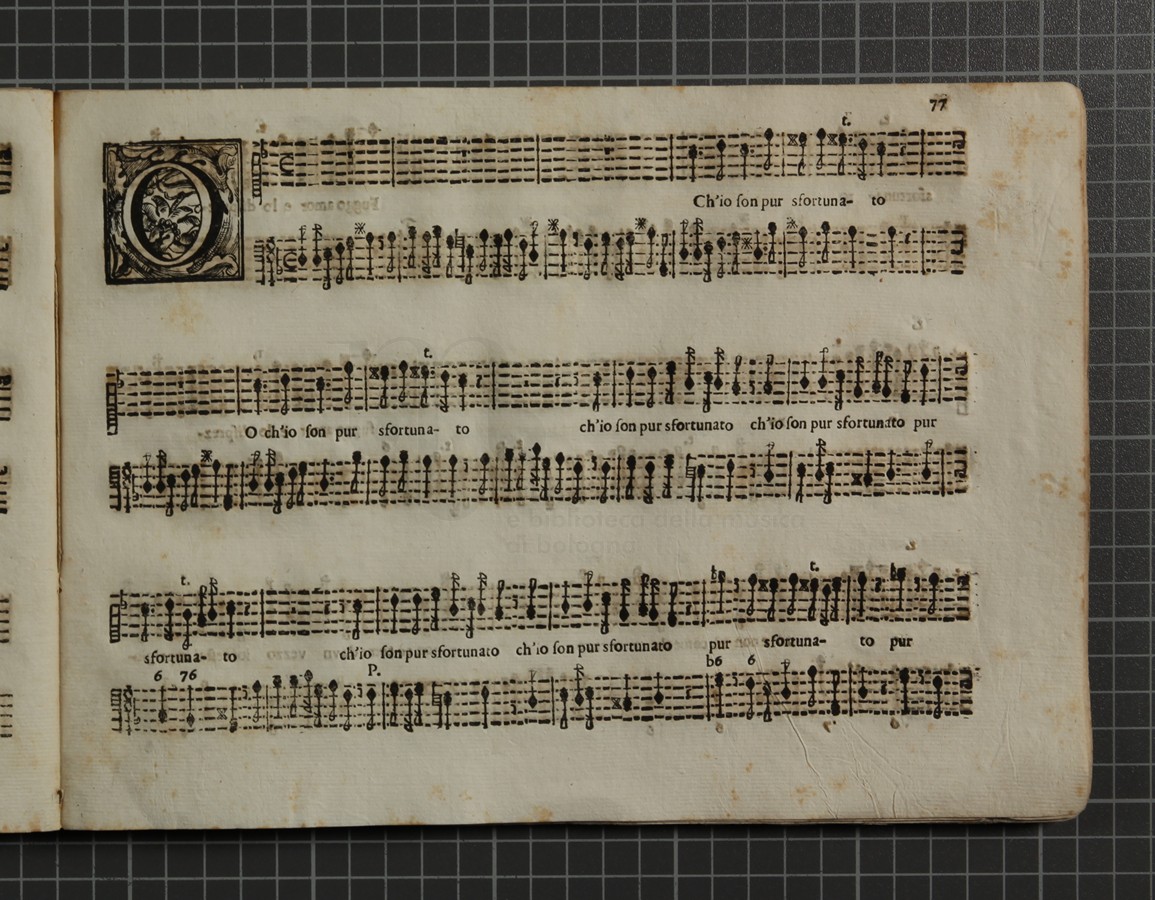 77
t.
O Ch'io ſon pur sfortuna- to
t.
O ch'io ſon pur sfortuna- to ch'io ſon pur sfortunato ch'io ſon pur sfortunato pur
e biblioteca della musica
di bologna
t. t.
sfortuna- to ch'io ſon pur sfortunato ch'io ſon pur sfortunato pur sfortuna- to pur
6 76 P. b6 6